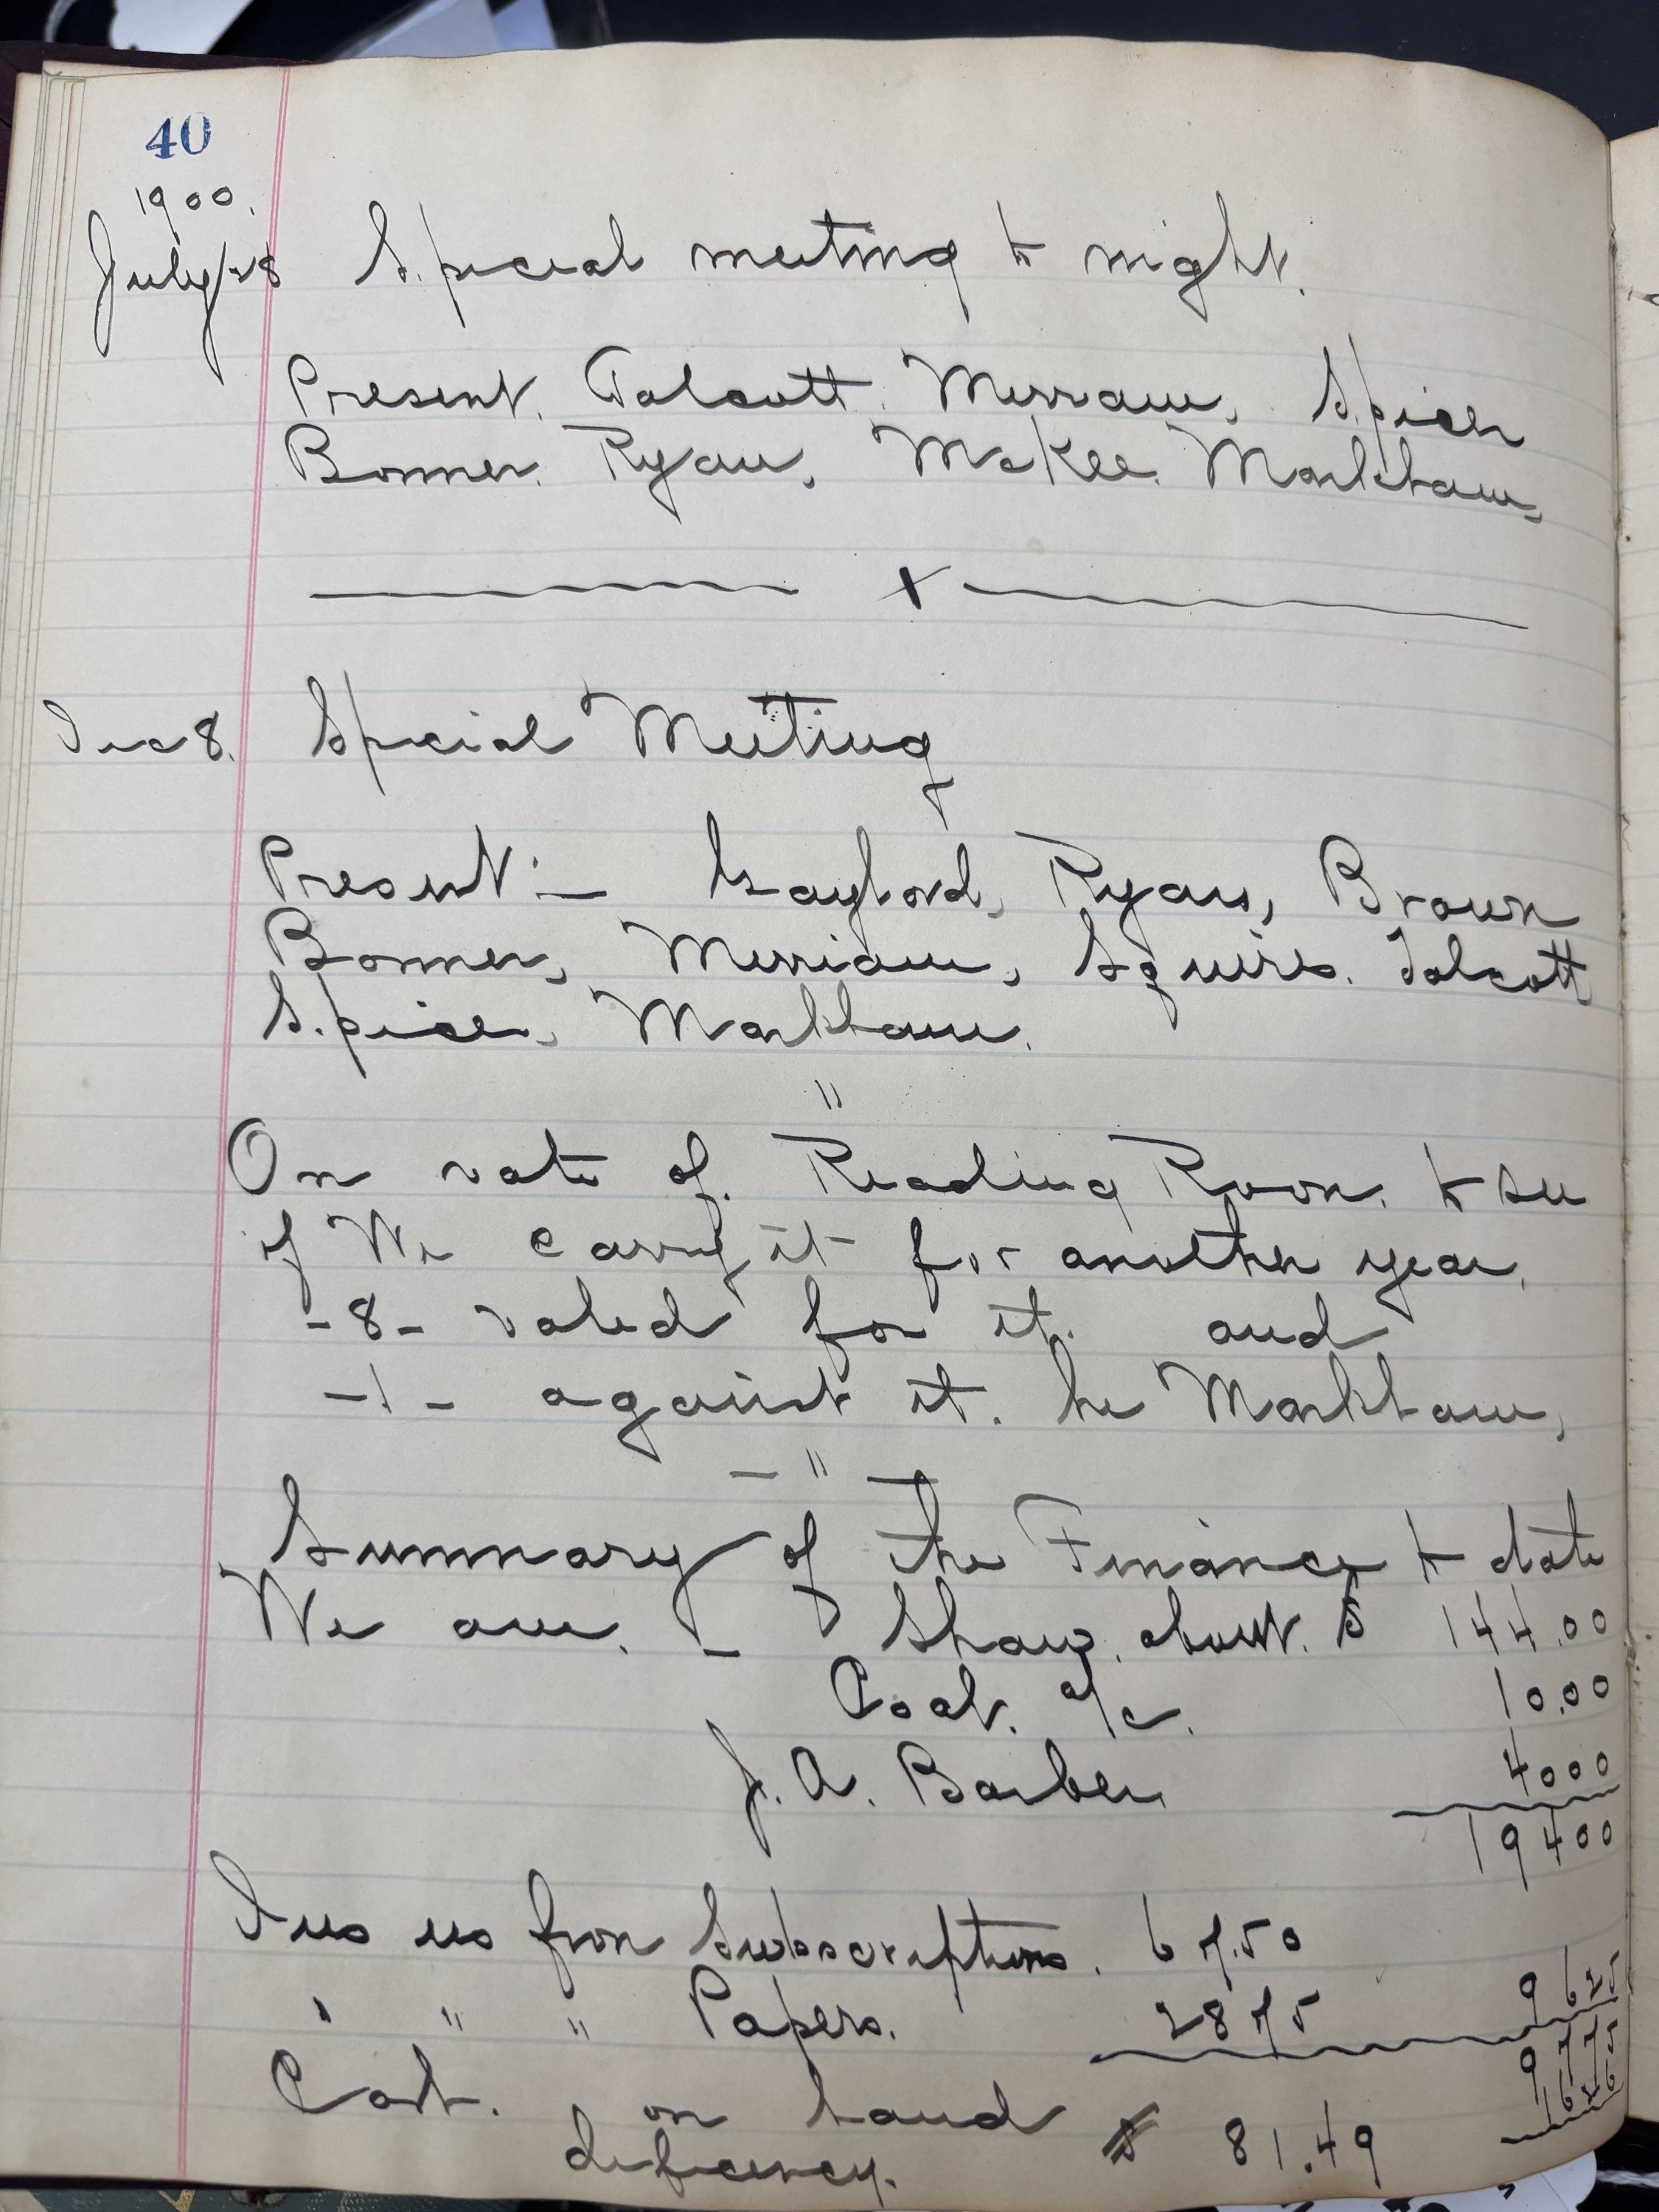 40
1900.
July 28 Special meeting to night.
Present. Talcott. Merriam, Spicer
Bonner. Ryan, McKee. Markham,
x
Dec 8. Special Meeting
Present:— Gaylord, Ryan, Brown
Bonner, Merriam, Squires. Talcott
Spicer, Markham.
"
On vote of. Reading Room. to see
if We carry it for another year,
-8- voted for it. and
-1- against it. he Markham,
— "
Summary of the Finances to date
We owe. - Shaw. about. $ 144.00
Coal. a/c. 10.00
J. A. Barber 4000
19400
Dues us from Subscriptions. 67.50
" " " Papers. 2875 9625
9775
Cash. on hand 1626
deficiency. $ 81.49